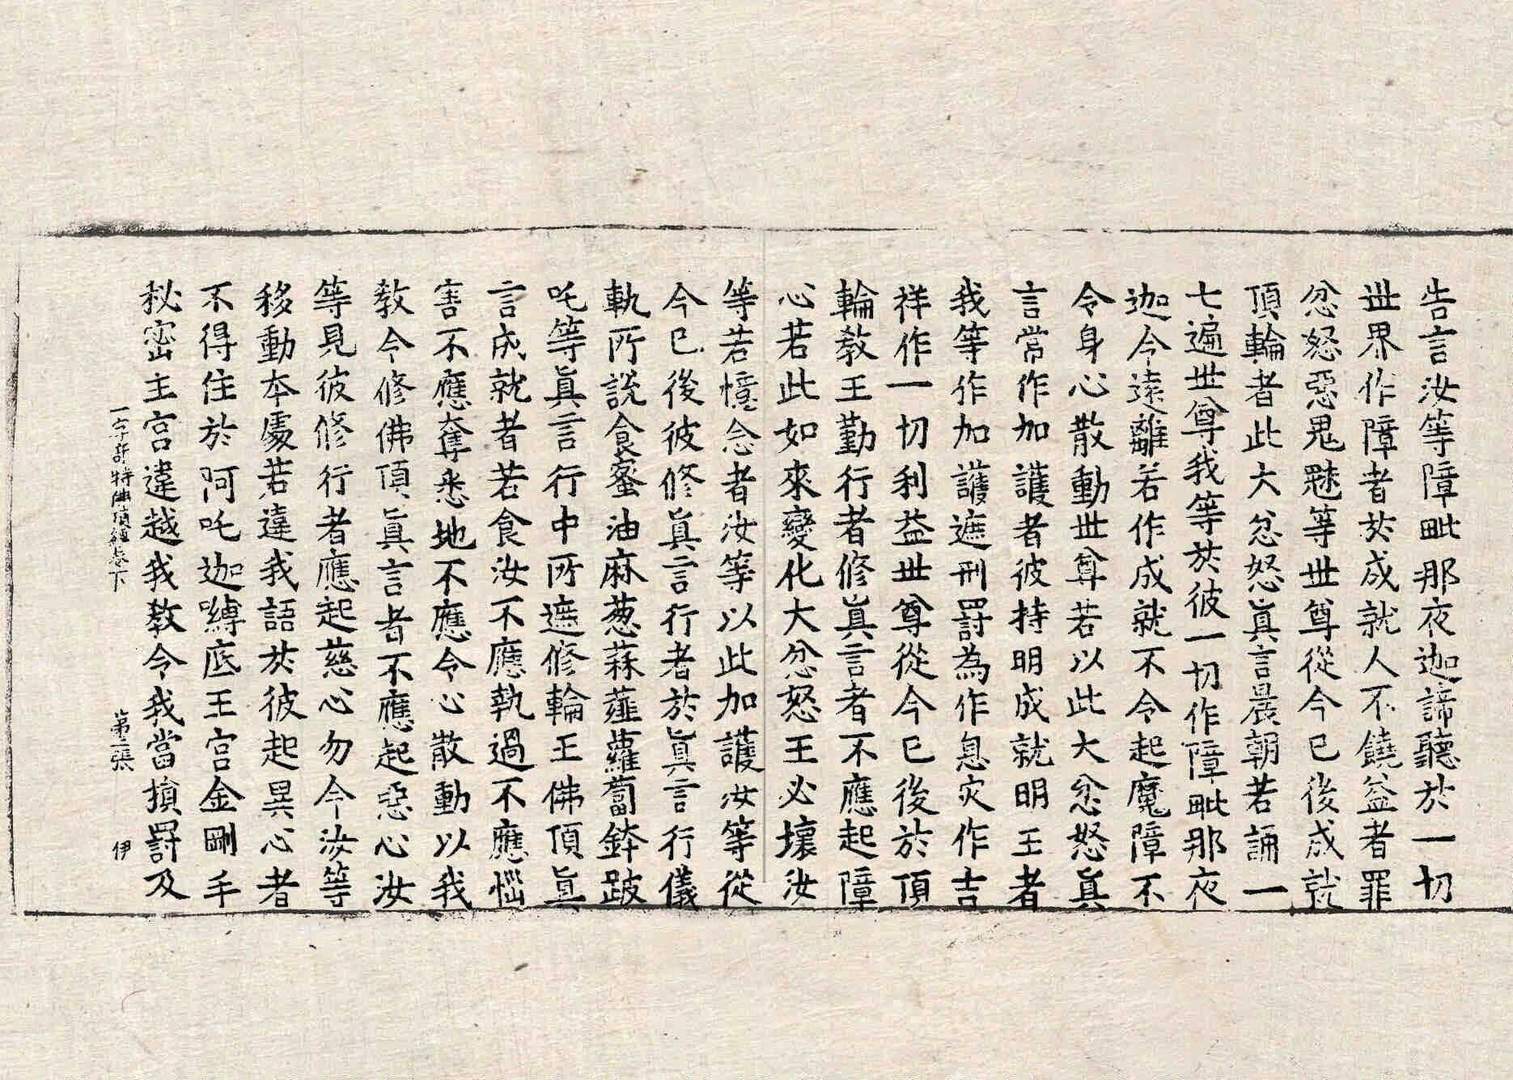 告言汝等障毗那夜迦諦聽於一切
世界作障者於成就人不饒益者罪
忿怒惡鬼魅等世尊從今已後成就
頂輪者此大忿怒真言晨朝若誦一
七遍世尊我等於彼一切作障毗那夜
迦今遠離若作成就不令起魔障不
令身心散動世尊若以此大忿怒真
言常作加護者彼持明成就明王者
我等作加護遮刑罸為作息灾作吉
祥作一切利益世尊從今已後於頂
輪敎王勤行者修真言者不應起障
心若此如來變化大忿怒王必壞汝
等若憶念者汝等以此加護汝等從
今已後彼修真言行者於真言行儀
軌所說食蜜油麻葱蒜薤蘿蔔鉢跛
吒等真言行中所遮修輪王佛頂真
言成就者若食汝不應執過不應惱
害不應奪悉地不應令心散動以我
敎令修佛頂真言者不應起惡心汝
等見彼修行者應起慈心勿令汝等
移動本處若違我語於彼起異心者
不得住於阿吒迦嚩底王宮金剛手
秘密主宮違越我敎令我當搷罸及
一字奇特佛頂經卷下 第二張 伊